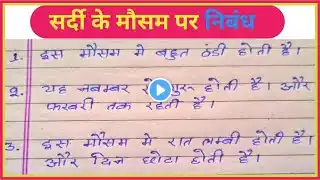 सर्दी के मौसम पर निबंध
1. इस मौसम मे बहुत ठंडी होती है।
2. यह नवम्बर से शुरू होती है। और
फरवरी तक रहती है।
3. इस मौसम मे रात लम्बी होती है।
और दिन छोटा होती है।